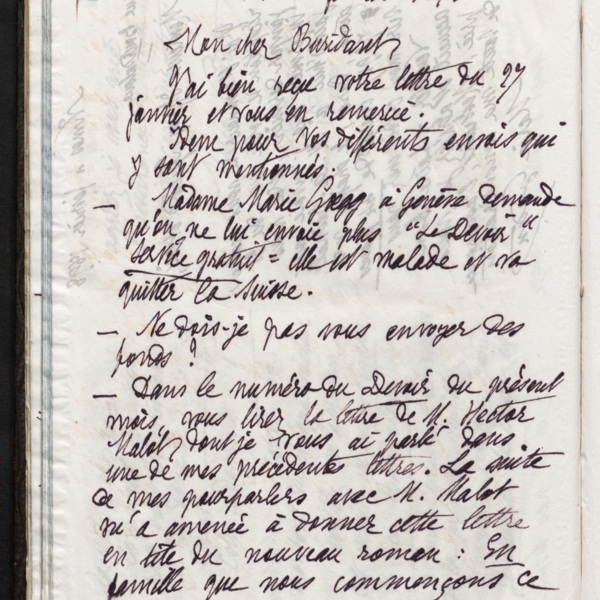 Mon cher Buridant,
J'ai bien reçu votre lettre du 27
janvier et vous en remercie.
Idem pour vos différents envois qui
y sont mentionnés.
— Madame Marie Gregg à Genève demande
qu'on ne lui envoie plus "Le Devoir"
service gratuit = elle est malade et va
quitter la Suisse.
— Ne dois-je pas vous envoyer des
fonds ?
— Dans le numéro du Devoir du présent
mois, vous lirez la lettre de M. Hector
Malot, dont je vous ai parlé dans
une de mes précédentes lettres. La suite
de mes pourparlers avec M. Malot
m'a amenée à donner cette lettre
en tête du nouveau roman : En
famille que nous commençons ce